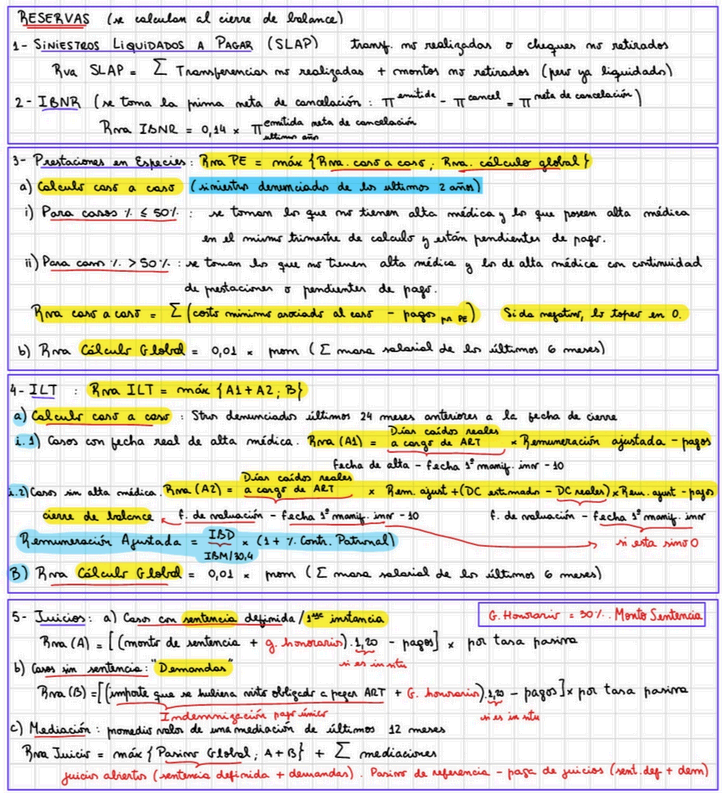 RESERVAS (se calculan al cierre de balance)
1- SINIESTROS LIQUIDADOS A PAGAR (SLAP) transf. no realizadas o cheques no retirados
Rva SLAP = Σ Transferencias no realizadas + montos no retirados (pero ya liquidado)
2- IBNR (se toma la prima neta de cancelación : π emitida - π cancel = π neta de cancelación)
Rva IBNR = 0,14 × π emitida neta de cancelación último año
3- Prestaciones en Especies: Rva PE = máx {Rva. caso a caso ; Rva. cálculo global}
a) Calculo caso a caso (siniestros denunciados de los ultimos 2 años)
i) Para casos % ≤ 50% : se toman los que no tienen alta médica y los que poseen alta médica
en el mismo trimestre de calculo y están pendientes de pago.
ii) Para casos % > 50% : se toman los que no tienen alta médica y los de alta médica con continuidad
de prestaciones o pendientes de pago.
Rva caso a caso = Σ (costo minimo asociado al caso - pagos por PE) Si da negativo, lo topeo en 0.
b) Rva Cálculo Global = 0,01 × prom (Σ masa salarial de los últimos 6 meses)
4- ILT : Rva ILT = máx {A1+A2 ; B}
a) Calculo caso a caso : Stros denunciados últimos 24 meses anteriores a la fecha de cierre
i.1) Casos con fecha real de alta médica. Rva (A1) = Días caídos reales a cargo de ART × Remuneración ajustada - pagos
fecha de alta - fecha 1º manif. inv - 10
i.2) Casos sin alta médica. Rva (A2) = Días caídos reales a cargo de ART × Rem. ajust + (DC estimado - DC reales) × Rem. ajust - pagos
cierre de balance ← f. de valuación - fecha 1º manif. inv - 10 f. de valuación - fecha 1º manif. inv
Remuneración Ajustada = IBD × (1 + % Contr. Patronal) si esta sino 0
IBM/30,4
B) Rva Cálculo Global = 0,01 × prom (Σ masa salarial de los últimos 6 meses)
5- Juicios: a) Casos con sentencia definida / 1era instancia G. Honorarios = 30% . Monto Sentencia
Rva (A) = [(monto de sentencia + g. honorarios). 1,20 - pagos] × por tasa pasiva
si es in situ
b) Casos sin sentencia: "Demandas"
Rva (B) = [(importe que se hubiera visto obligado a pagar ART + G. honorarios). 1,20 - pagos] × por tasa pasiva
Indemnización pago único si es in situ
c) Mediación: promedio valor de una mediación de últimos 12 meses
Rva Juicio = máx {Pasivo Global ; A+B} + Σ mediaciones
juicios abiertos (sentencia definida + demandas) . Pasivo de referencia - paga de juicios (sent. def + dem)